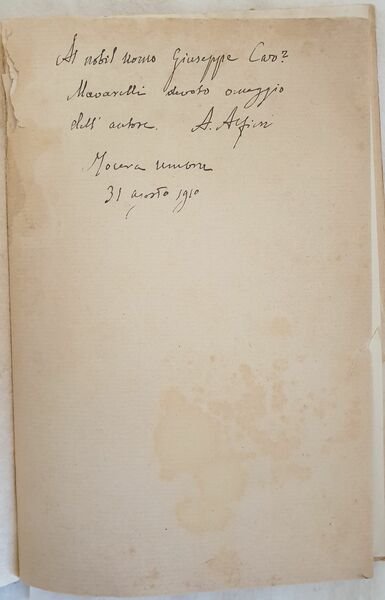 Al nobil uomo Giuseppe Cav?
Mavarelli devoto omaggio
dell' autore. A. Alfieri
Nocera umbra
31 agosto 1910